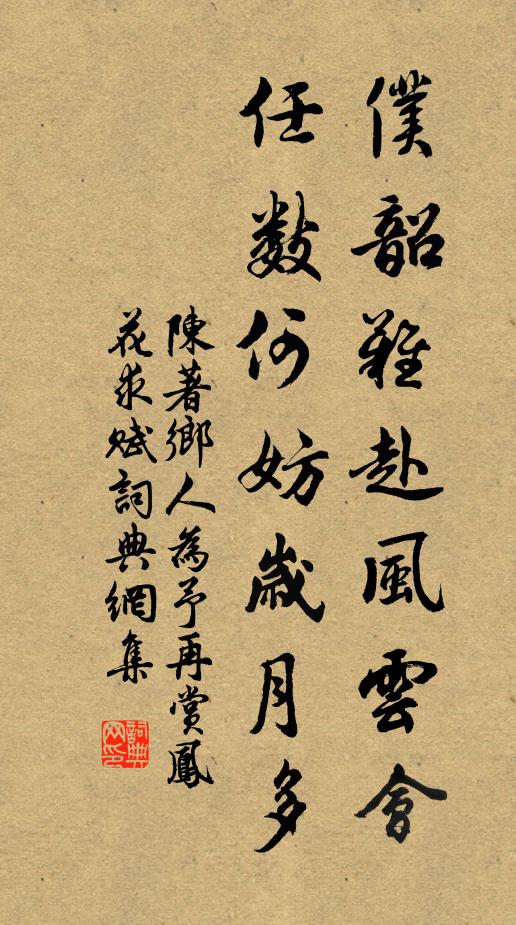 僕韶難赴風雲會
任數何妨歲月多
陳著鄉人為予再賞鳳
花求賦詞典網集
詞典網印